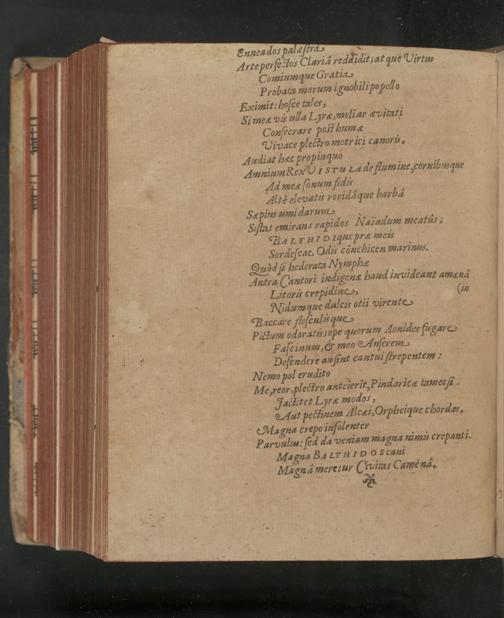 Enneados palæstra
Arte perfectos Clariâ reddidit; atque Virtus
Comiumque Gratia
Probata morum ignobili popello
Eximit: hosce tales,
Si meæ vis ulla Lyræ, moliar ævitati
Consecrare posthumæ
Vivace plectro motrici canoris.
Audiat hæc propinquo
Amnium Rex VISTULA de flumine, cornibusque
Ad meæ sonum fidis
Altè elevatis roridâque barbâ
Sæpius umidarum
Sistat emirans rapidos Naïadum meatûs;
BALTHIDIque præ meis
Sordescat Odis cônchicen marinus.
Quòd si hederata Nymphæ
Antra Cantori indigenæ haud invideant amœnâ
Litoris crepidine, (in
Nidumque dulcis otii virente
Baccare flosculisque
Pictum odoratis; ope quorum Aonides fugare
Fascinum, & meo Anserem
Defendere ausint cantui strepentem:
Nemo pol erudito
Me, reor, plectro antcierit, Pindaricæ tametsi
Jactitet Lyræ modos,
Aut pectinem Alcæi, Orpheique chordas.
Magna crepo insolenter
Parvulus: sed da veniam magna nimis crepanti.
Magna BALTHIDOS cani
Magnâ meretur Civitas Camœnâ.